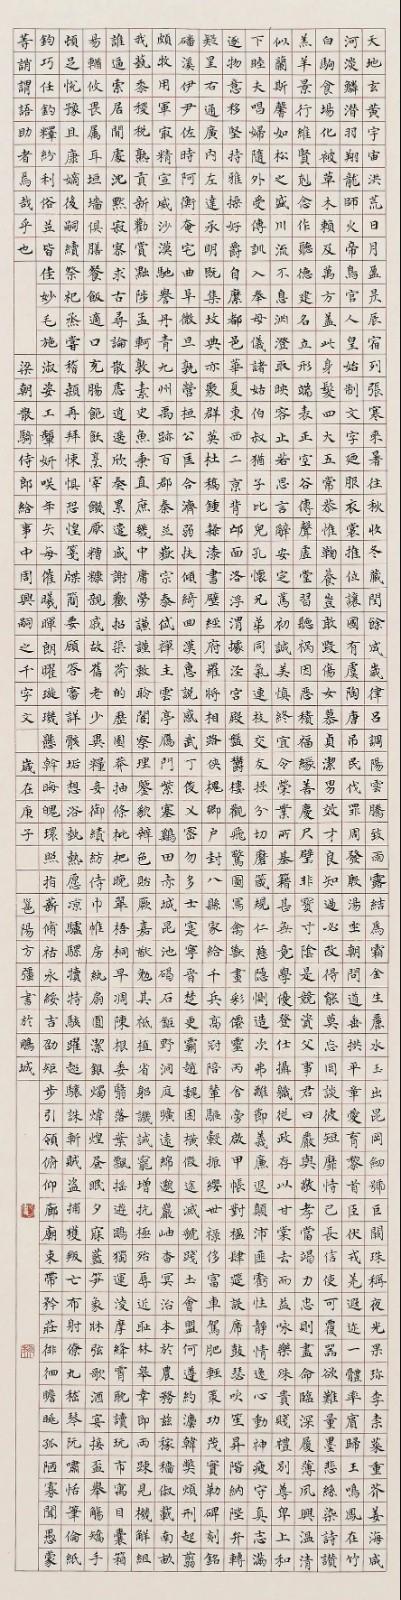 天地玄黃宇宙洪荒日月盈昃辰宿列張寒來暑往秋收冬藏閏餘成歲律呂調陽雲騰致雨露結為霜金生麗水玉出崑岡劍號巨闕珠稱夜光果珍李柰菜重芥薑海鹹
河淡鱗潛羽翔龍師火帝鳥官人皇始制文字乃服衣裳推位讓國有虞陶唐弔民伐罪周發殷湯坐朝問道垂拱平章愛育黎首臣伏戎羌遐邇一體率賓歸王鳴鳳在竹
白駒食場化被草木賴及萬方蓋此身髮四大五常恭惟鞠養豈敢毀傷女慕貞潔男效才良知過必改得能莫忘罔談彼短靡恃己長信使可覆器欲難量墨悲絲染詩讚
羔羊景行維賢剋念作聖德建名立形端表正空谷傳聲虛堂習聽禍因惡積福緣善慶尺璧非寶寸陰是競資父事君曰嚴與敬孝當竭力忠則盡命臨深履薄夙興溫凊
似蘭斯馨如松之盛川流不息淵澄取映容止若思言辭安定篤初誠美慎終宜令榮業所基籍甚無竟學優登仕攝職從政存以甘棠去而益詠樂殊貴賤禮別尊卑上和
下睦夫唱婦隨外受傅訓入奉母儀諸姑伯叔猶子比兒孔懷兄弟同氣連枝交友投分切磨箴規仁慈隱惻造次弗離節義廉退顛沛匪虧性靜情逸心動神疲守真志滿
逐物意移堅持雅操好爵自縻都邑華夏東西二京背邙面洛浮渭據涇宮殿盤鬱樓觀飛驚圖寫禽獸畫彩僊靈丙舍傍啟甲帳對楹肆筵設席鼓瑟吹笙昇階納陛弁轉
疑星右通廣內左達承明既集墳典亦聚群英杜稿鍾隸漆書壁經府羅將相路俠槐卿戶封八縣家給千兵高冠陪輦驅轂振纓世祿侈富車駕肥輕策功茂實勒碑刻銘
磻溪伊尹佐時阿衡奄宅曲阜微旦孰營桓公匡合濟弱扶傾綺迴漢惠說感武丁俊乂密勿多士寔寧晉楚更霸趙魏困橫假途滅虢踐土會盟何遵約法韓弊煩刑起翦
頗牧用軍最精宣威沙漠馳譽丹青九州禹跡百郡秦并嶽宗恆岱禪主云亭雁門紫塞雞田赤城昆池碣石鉅野洞庭曠遠綿邈巖岫杳冥治本於農務茲稼穡俶載南畝
我藝黍稷稅熟貢新勸賞黜陟孟軻敦素史魚秉直庶幾中庸勞謙謹敕聆音察理鑒貌辨色貽厥嘉猷勉其祗植省躬譏誡寵增抗極殆辱近恥林皋幸即兩疏見機解組
誰逼索居閒處沉默寂寥求古尋論散慮逍遙欣奏累遣慼謝歡招渠荷的歷園莽抽條枇杷晚翠梧桐早凋陳根委翳落葉飄颻遊鵾獨運凌摩絳霄耽讀玩市寓目囊箱
易輶攸畏屬耳垣牆具膳餐飯適口充腸飽飫烹宰飢厭糟糠親戚故舊老少異糧妾御績紡侍巾帷房紈扇圓潔銀燭煒煌晝眠夕寐藍筍象床弦歌酒宴接杯舉觴矯手
頓足悅豫且康嫡後嗣續祭祀烝嘗稽顙再拜悚懼恐惶箋牒簡要顧答審詳骸垢想浴執熱願涼驢騾犢特駭躍超驤誅斬賊盜捕獲叛亡布射僚丸嵇琴阮嘯恬筆倫紙
鈞巧任釣釋紛利俗並皆佳妙毛施淑姿工顰妍笑年矢每催曦暉朗曜璇璣懸斡晦魄環照指薪修祜永綏吉劭矩步引領俯仰廊廟束帶矜莊徘徊瞻眺孤陋寡聞愚蒙
等誚謂語助者焉哉乎也 梁朝散騎侍郎給事中周興嗣之千字文 歲在庚子 邕陽方彊書於鵬城